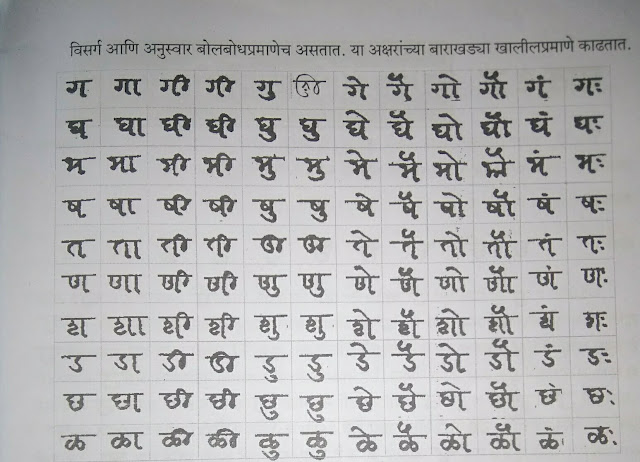 विसर्ग आणि अनुस्वार बोलबोधप्रमाणेच असतात. या अक्षरांच्या बाराखड्या खालीलप्रमाणे काढतात.
ग गा गी गी गु गे गै गो गौ गं गः
घ घा घी घी घु घु घे घै घो घौ घं घः
ष षा षी षी षु षु षे षै षो षौ षं षः
त ता ती ती ते तै तो तौ तं तः
ण णा णी णी णु णु णे णै णो णौ णं णः
श शा शी शी शु शु शे शै शो शौ
ड डा डी डी डु डु डे डै डो डौ डं डः
छ छा छी छी छु छु छे छै छो छौ छं छः
ळ ळा ळी ळी ळु ळु ळे ळै ळो ळौ ळं ळः